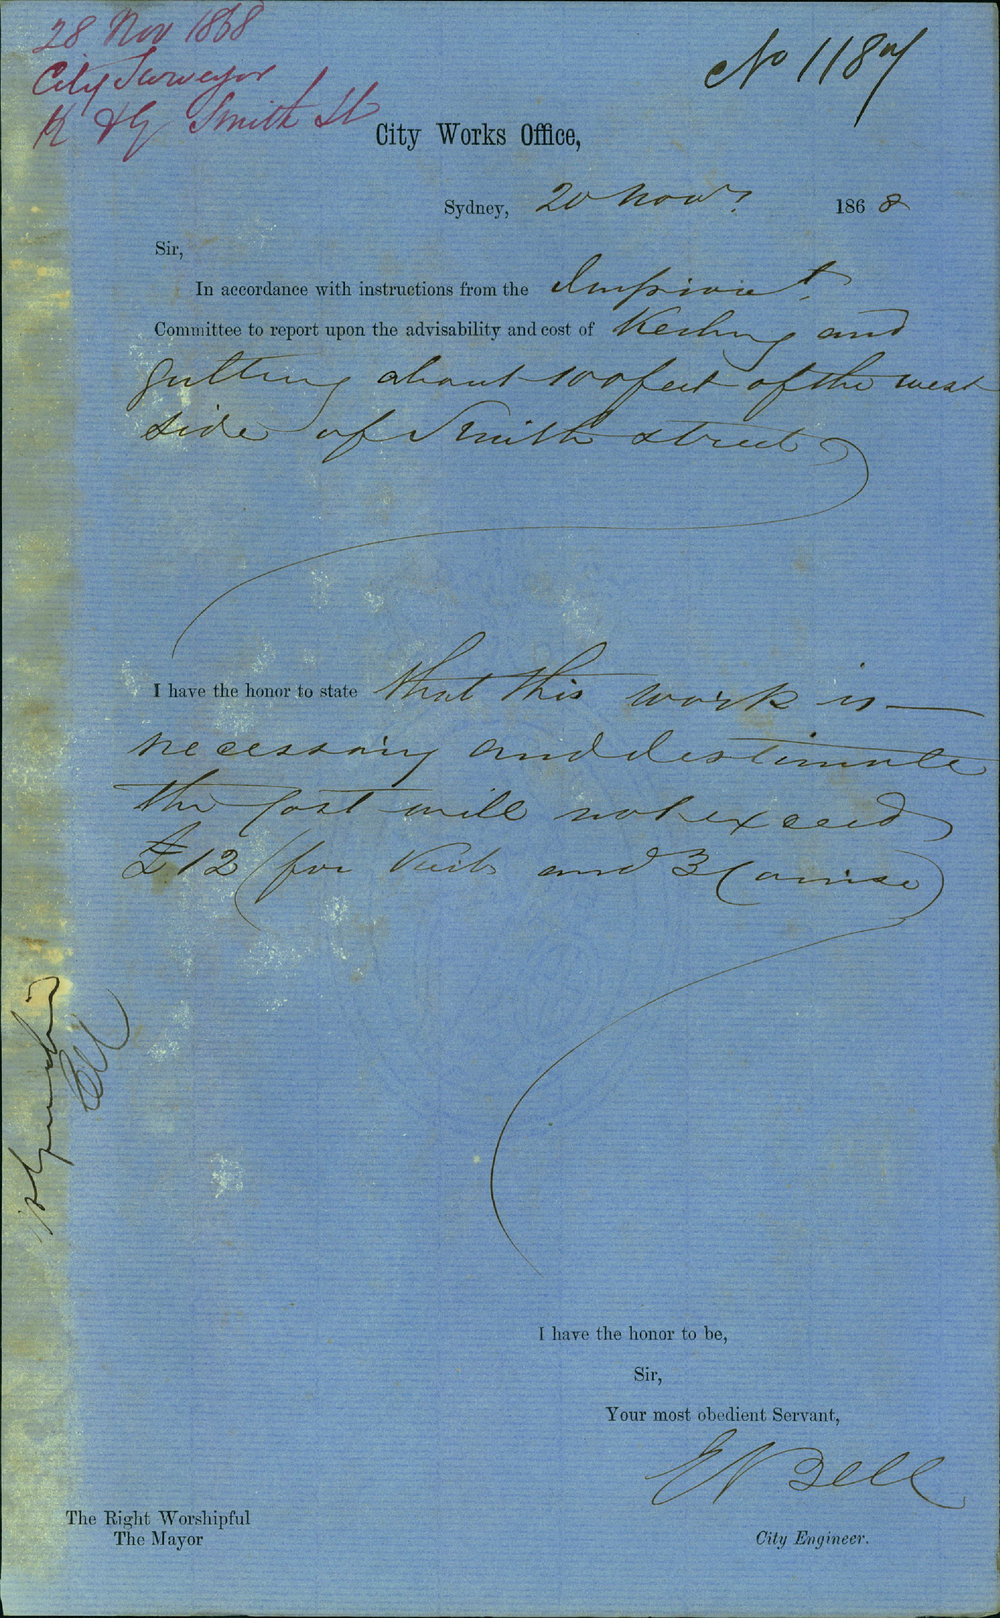 28 Nov 1868
City Surveyor
K & G Smith St
No 1187
City Works Office,
Sydney, 20 Novr. 1868
Sir,
In accordance with instructions from the Improvt.
Committee to report upon the advisability and cost of Kerbing and
guttering about 100 feet of the west
side of Smith street
I have the honor to state that this work is
necessary and I estimate
the cost will not exceed
£12 (for Kerb and 3 Course)
I have the honor to be,
Sir,
Your most obedient Servant,
E Bell
The Right Worshipful
The Mayor
City Engineer.